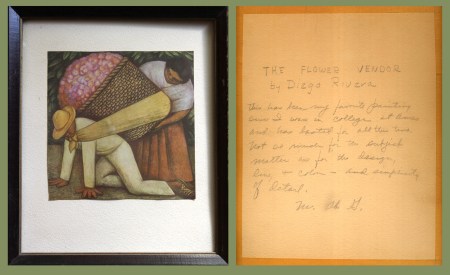 THE FLOWER VENDOR
by Diego Rivera
This has been my favorite painting
since I was in college at
and has lasted for all this time
Not so much for the subject
matter as for the design,
line, color - and simplicity
of detail.